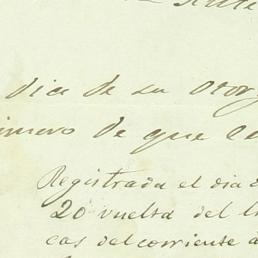 dia de su Otorg
imero de que ce
Registrada el dia d
20 vuelta del li
cas del corriente a